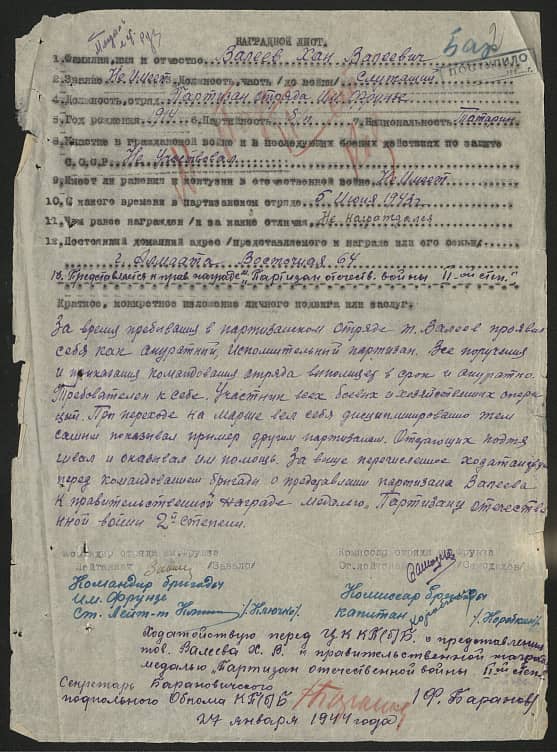 2
Бар
ПОСТУПИЛО
НАГРАДНОЙ ЛИСТ.
1. Фамилия, имя и отчество Валеев Хан Валеевич
2. Звание Не имеет 3. Должность, часть /до войны/ Служащий
4. Должность, отряд Партизан отряда им. Фрунзе
5. Год рождения 1914 6. Партийность б/п 7. Национальность Татарин
8. Участие в гражданской войне и в последующих боевых действиях по защите
С.С.С.Р. Не участвовал
9. Имеет ли ранения и контузии в отечественной войне Не имеет
10. С какого времени в партизанском отряде 5 Июня 1942 г
11. Чем ранее награжден /и за какие отличия Не награждался
12. Постоянный домашний адрес /представляемого к награде или его семьи/
Восточная 64
13. Представляется к прав. награде "Партизан отечеств. войны II-ой степ."
Краткое, конкретное изложение личного подвига или заслуг.
За время пребывания в партизанском отряде т. Валеев проявил
себя как акуратный, исполнительный партизан. Все поручения
и приказания командования отряда выполняет в срок и акуратно.
Требователен к себе. Участник всех боевых и хозяйственных опера
ций. При переходе на марше вел себя дисциплинированно тем
самим показывал пример другим партизанам. Отстающих подтя
гивал и оказывал им помощь. За выше перечисленное ходатайствую
перед командованием бригады о представлении партизана Валеева
к правительственной награде медалью, Партизану отечестве
нной войны 2й степени.
Командир отряда им. Фрунзе Комиссар отряда им. Фрунзе
Лейтенант /Завало/ Ст. лейтенант /Самойлов/
Командир бригады Комиссар бригады
им. Фрунзе
Ст. Лейт-т /Ключко/ капитан /Короткин/
Ходатайствую перед ЦК КП(б)Б. о представлении
тов. Валеева Х. В. к правительственной награде
медалью "Партизан отечественной войны II-ой степ."
Секретарь Барановичского
подпольного Обкома КП(б)Б /Ф. Баранов/
27 января 1944 года